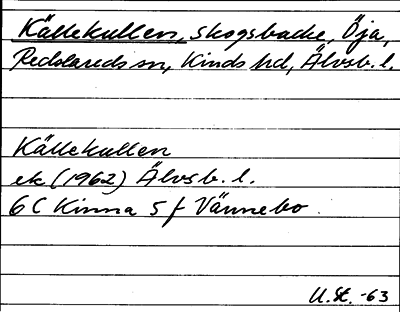 Källekullen, skogsbacke, Öja,
Redslareds sn, Kinds hd, Älvsb. l.
Källekullen
ek (1962) Älvsb. l.
6 C Kinna 5 f Vännebo.
U. St. -63